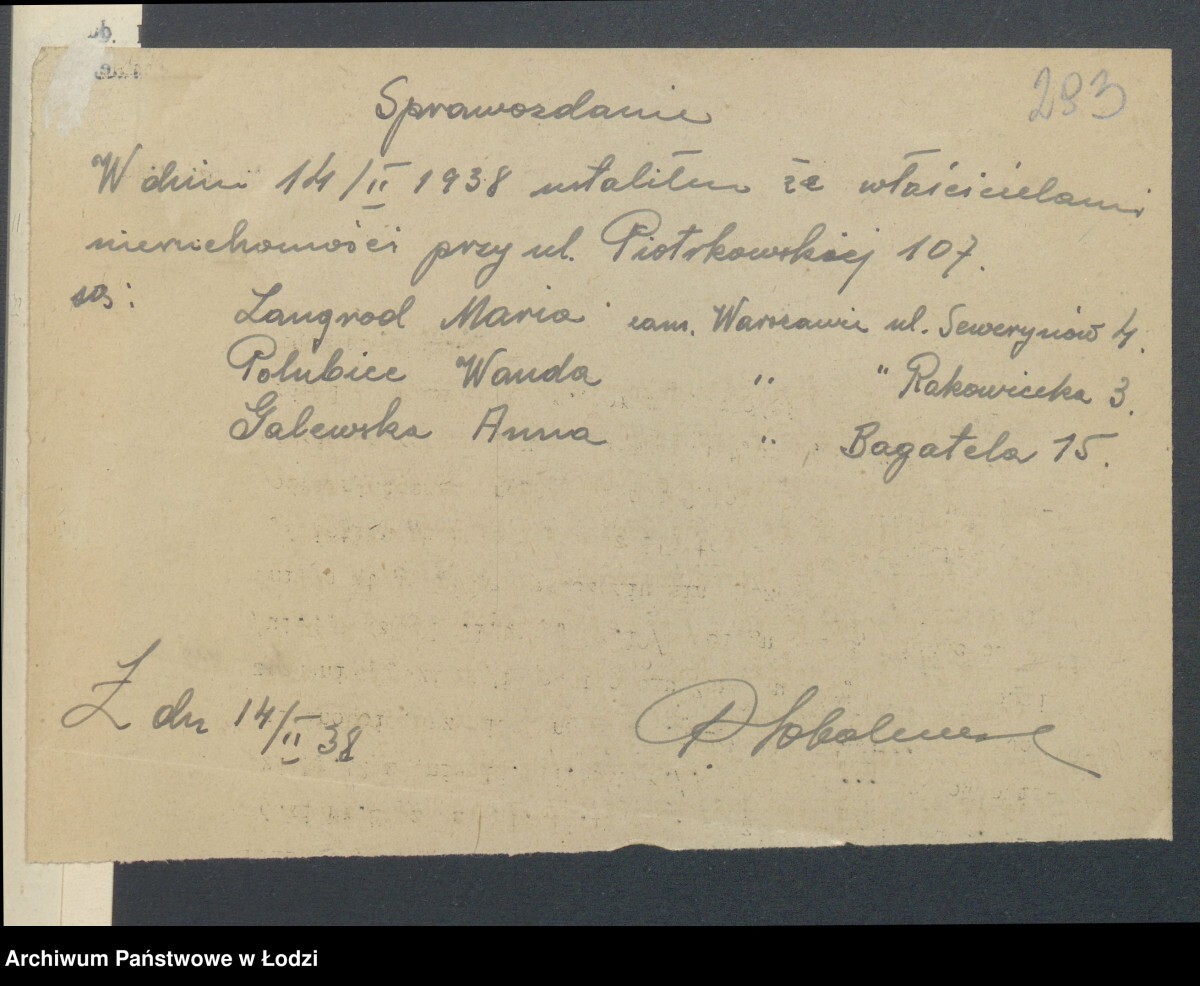 293
Sprawozdanie
W dniu 14/II 1938 ustaliłem że właścicielami
nieruchomości przy ul. Piotrkowskiej 107.
są:
Langrod Maria zam. Warszawie ul. Sewerynów 4.
Połubiec Wanda " " Rakowiecka 3.
Galewska Anna " Bagatela 15.
Ł dn 14/II 38
Archiwum Państwowe w Łodzi